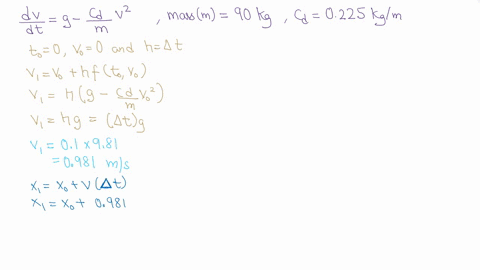 dv/dt = g - Cd/m v² , mass(m) = 90 kg , Cd = 0.225 kg/m
t₀=0, v₀=0 and h=Δt
v₁ = v₀ + hf(t₀, v₀)
v₁ = h(g - Cd/m v₀²)
v₁ = hg = (Δt)g
v₁ = 0.1 × 9.81
= 0.981 m/s
x₁ = x₀ + v(Δt)
x₁ = x₀ + 0.981